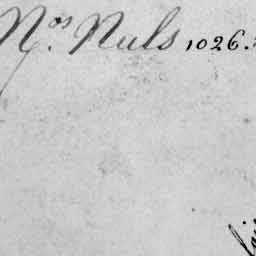 Nos. Nuls 1026.